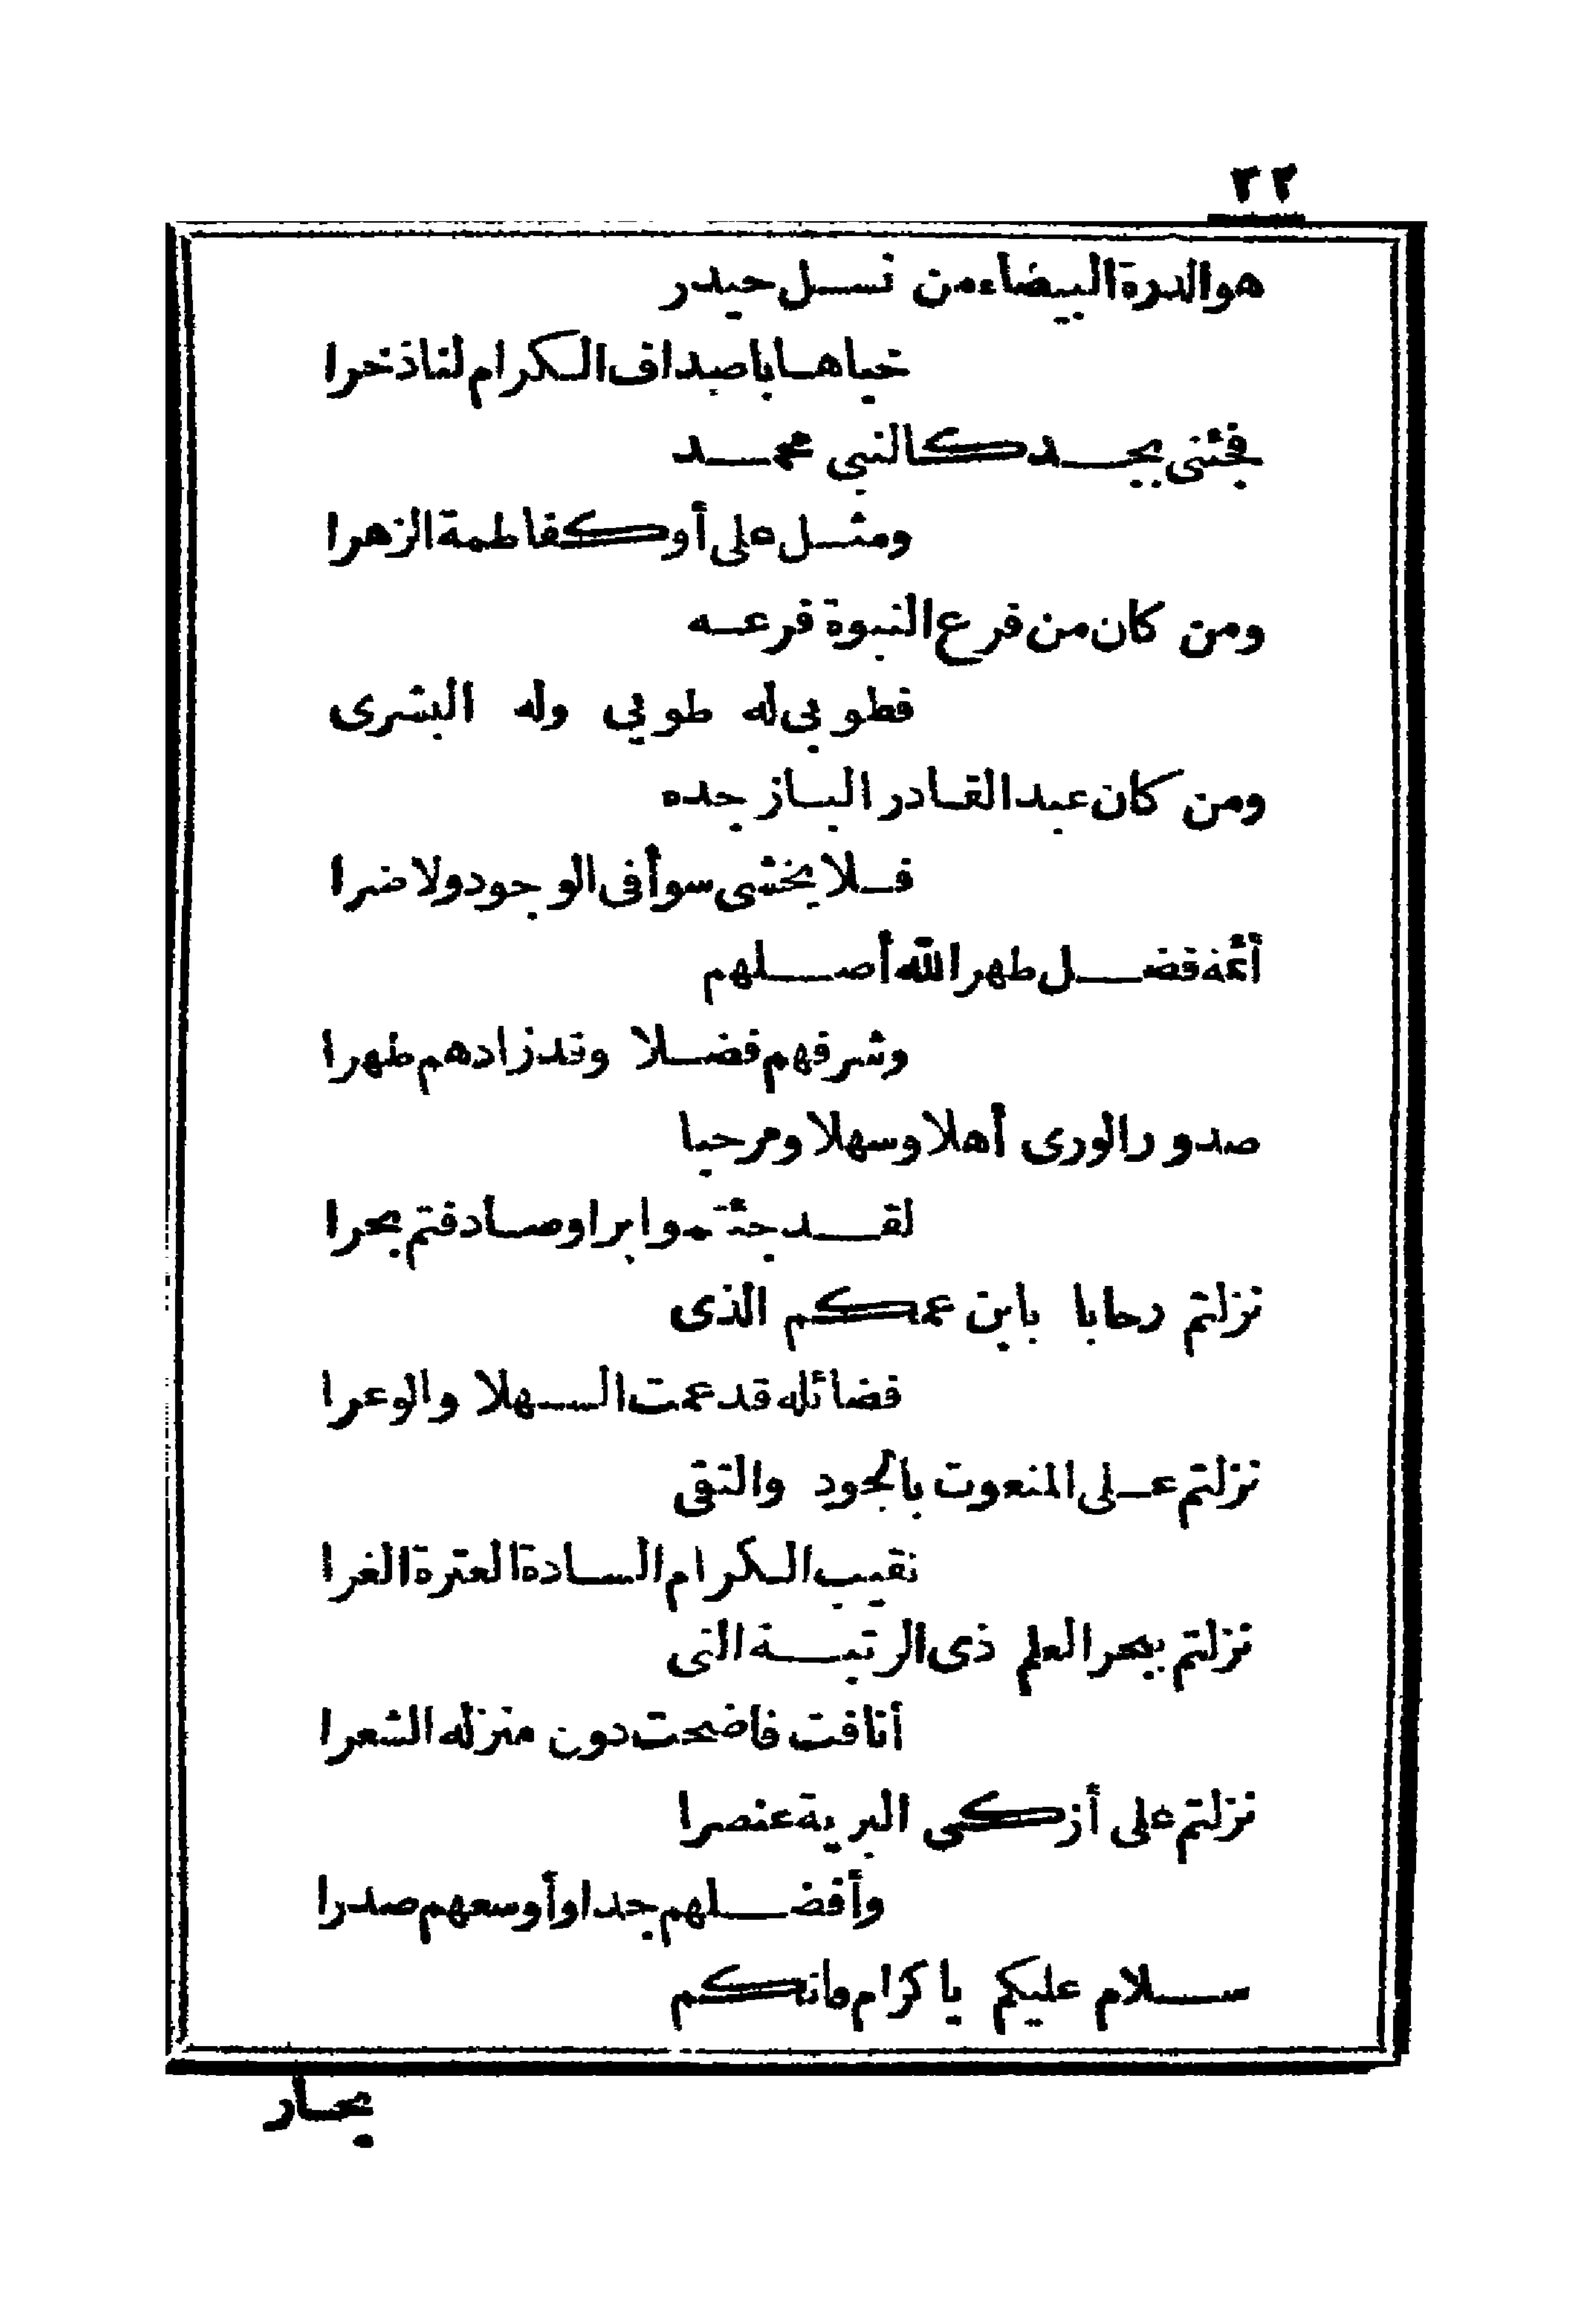 ٣٢
هو الدرة البيضاء من نسل حيدر
خباها باصداف الكرام لنا ذخرا
فجئنى بجد كالنبي محمد
ومثل على أو كفاطمة الزهرا
ومن كان من فرع النبوة فرعه
فطوبى له طوبى وله البشرى
ومن كان عبد القادر الباز جده
فلا يخشى سوأ فى الوجود ولا ضرا
أئمة فضل طهر الله أصلهم
وشرفهم فضلا وقد زادهم طهرا
صدور الورى أهلا وسهلا ومرحبا
لقد جئتموا برا وصادفتم بحرا
نزلتم رحابا باين عمكم الذى
فضائله قد عمت السهلا والوعرا
نزلتم على المنعوت بالجود والتقى
نقيب الكرام السادة العترة الغرا
نزلتم ببحر العلم ذى الرتبة التى
أنافت فاضحت دون منزله الشعرا
نزلتم على أزكى البرية عنصرا
وأفضلهم جدا وأوسعهم صدرا
سلام عليكم يا كرام فانكم
بحار